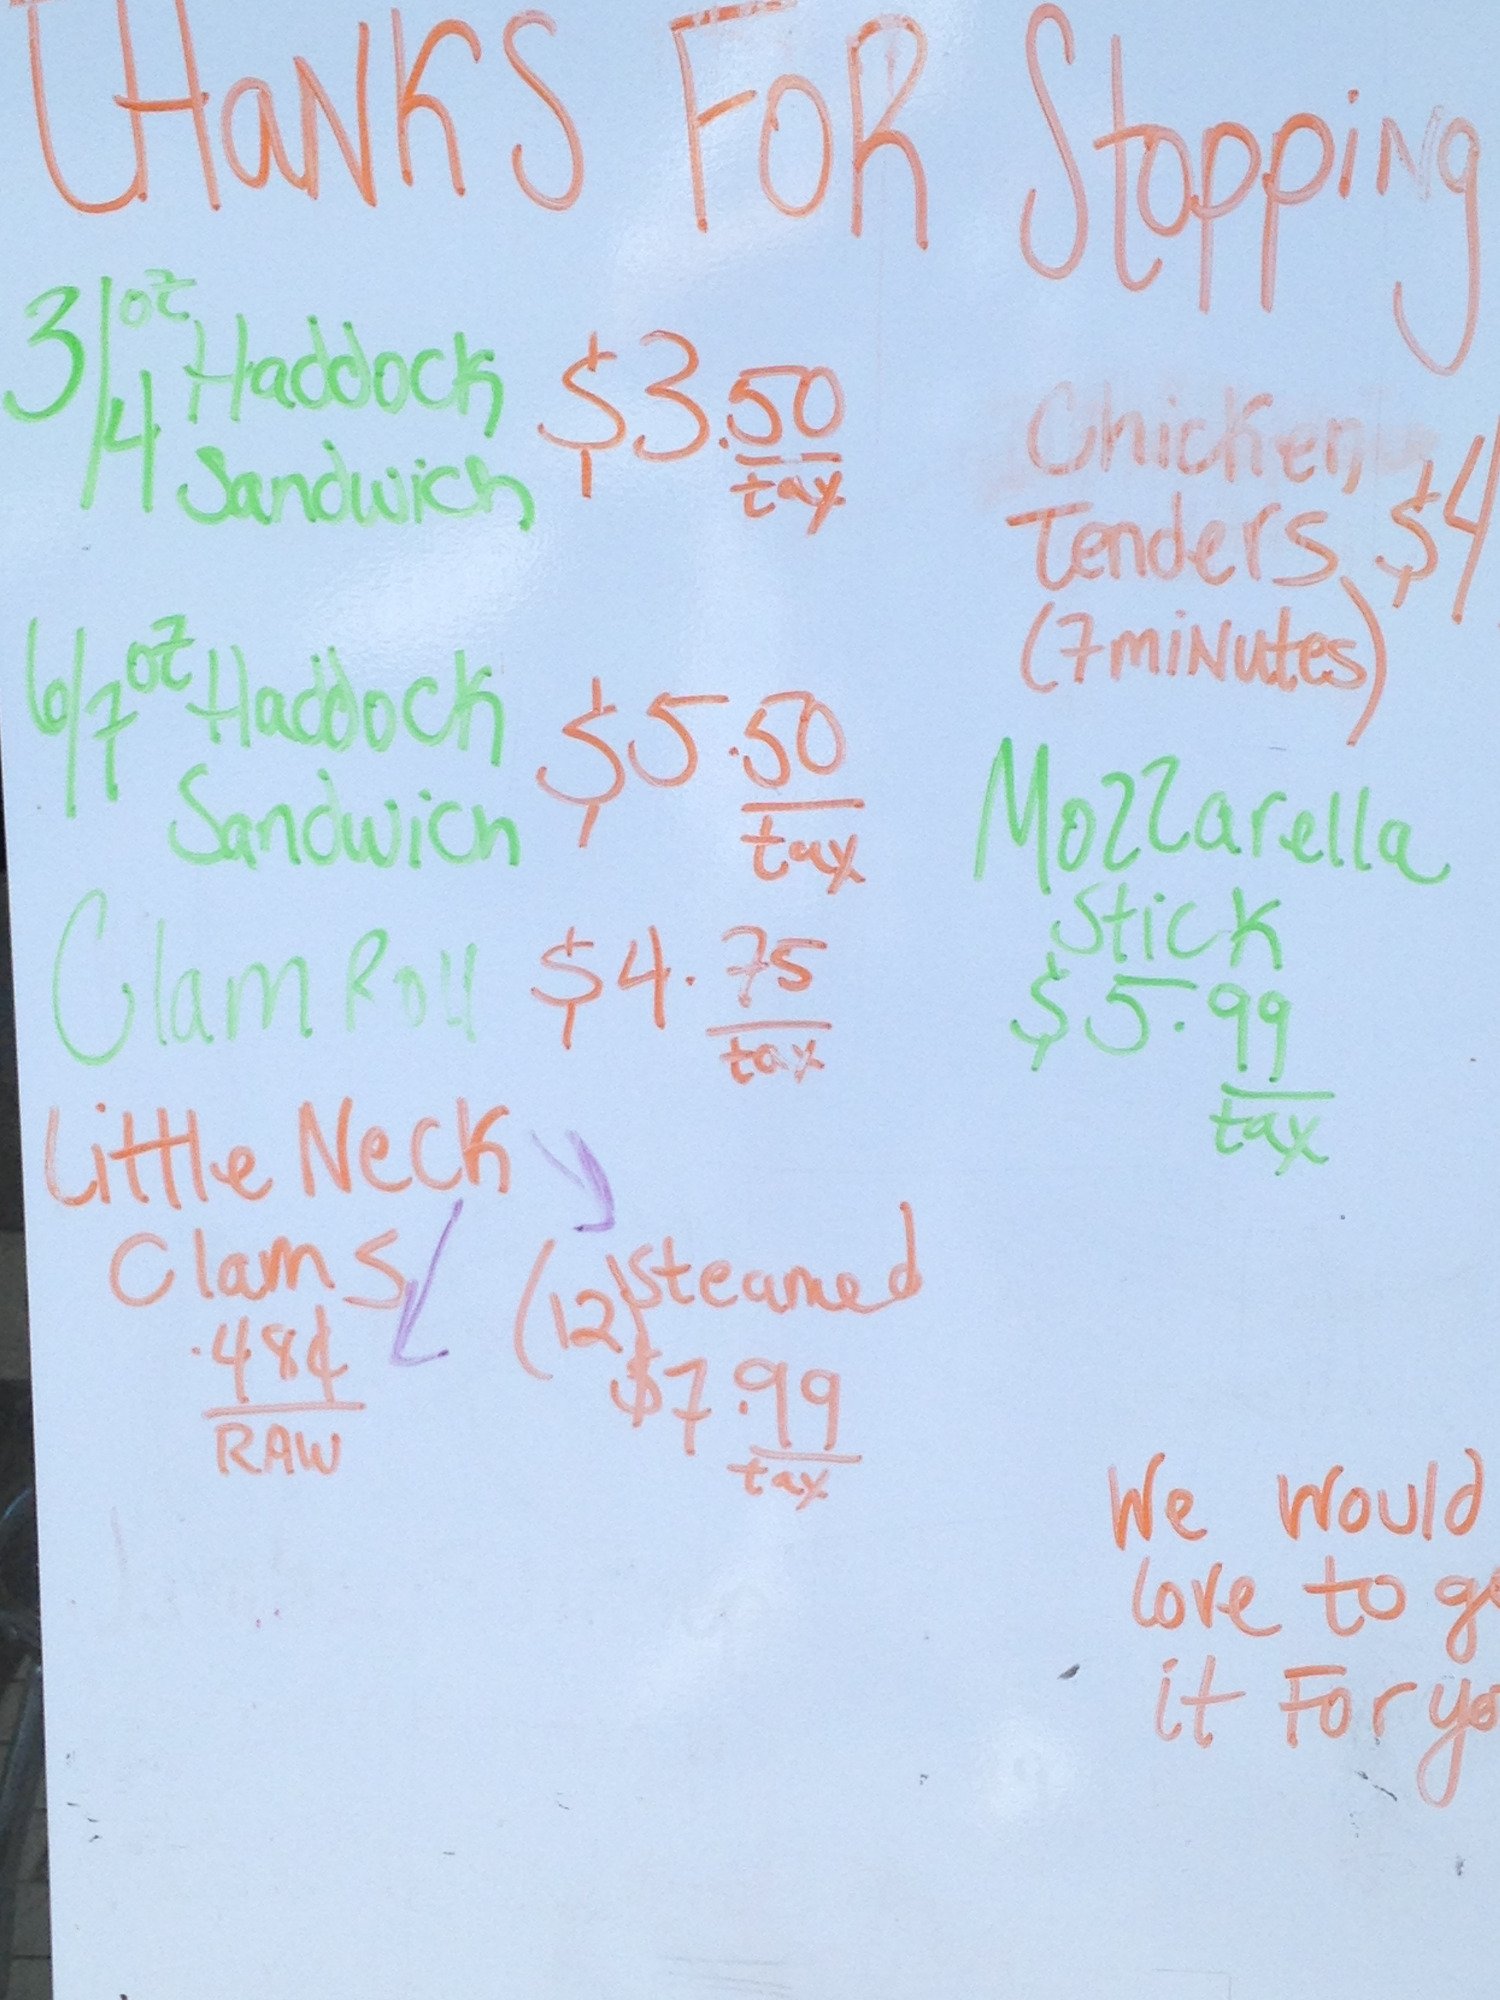 THANKS FOR Stopping
3/4 oz Haddock $3.50
Sandwich tax
6/7 oz Haddock $5.50
Sandwich tax
Clam Roll $4.75
tax
Little Neck
Clams
.48¢
RAW
(12) Steamed
$7.99
tax
Chicken
Tenders $4
(7 minutes)
Mozzarella
Stick
$5.99
tax
We would
love to
it For